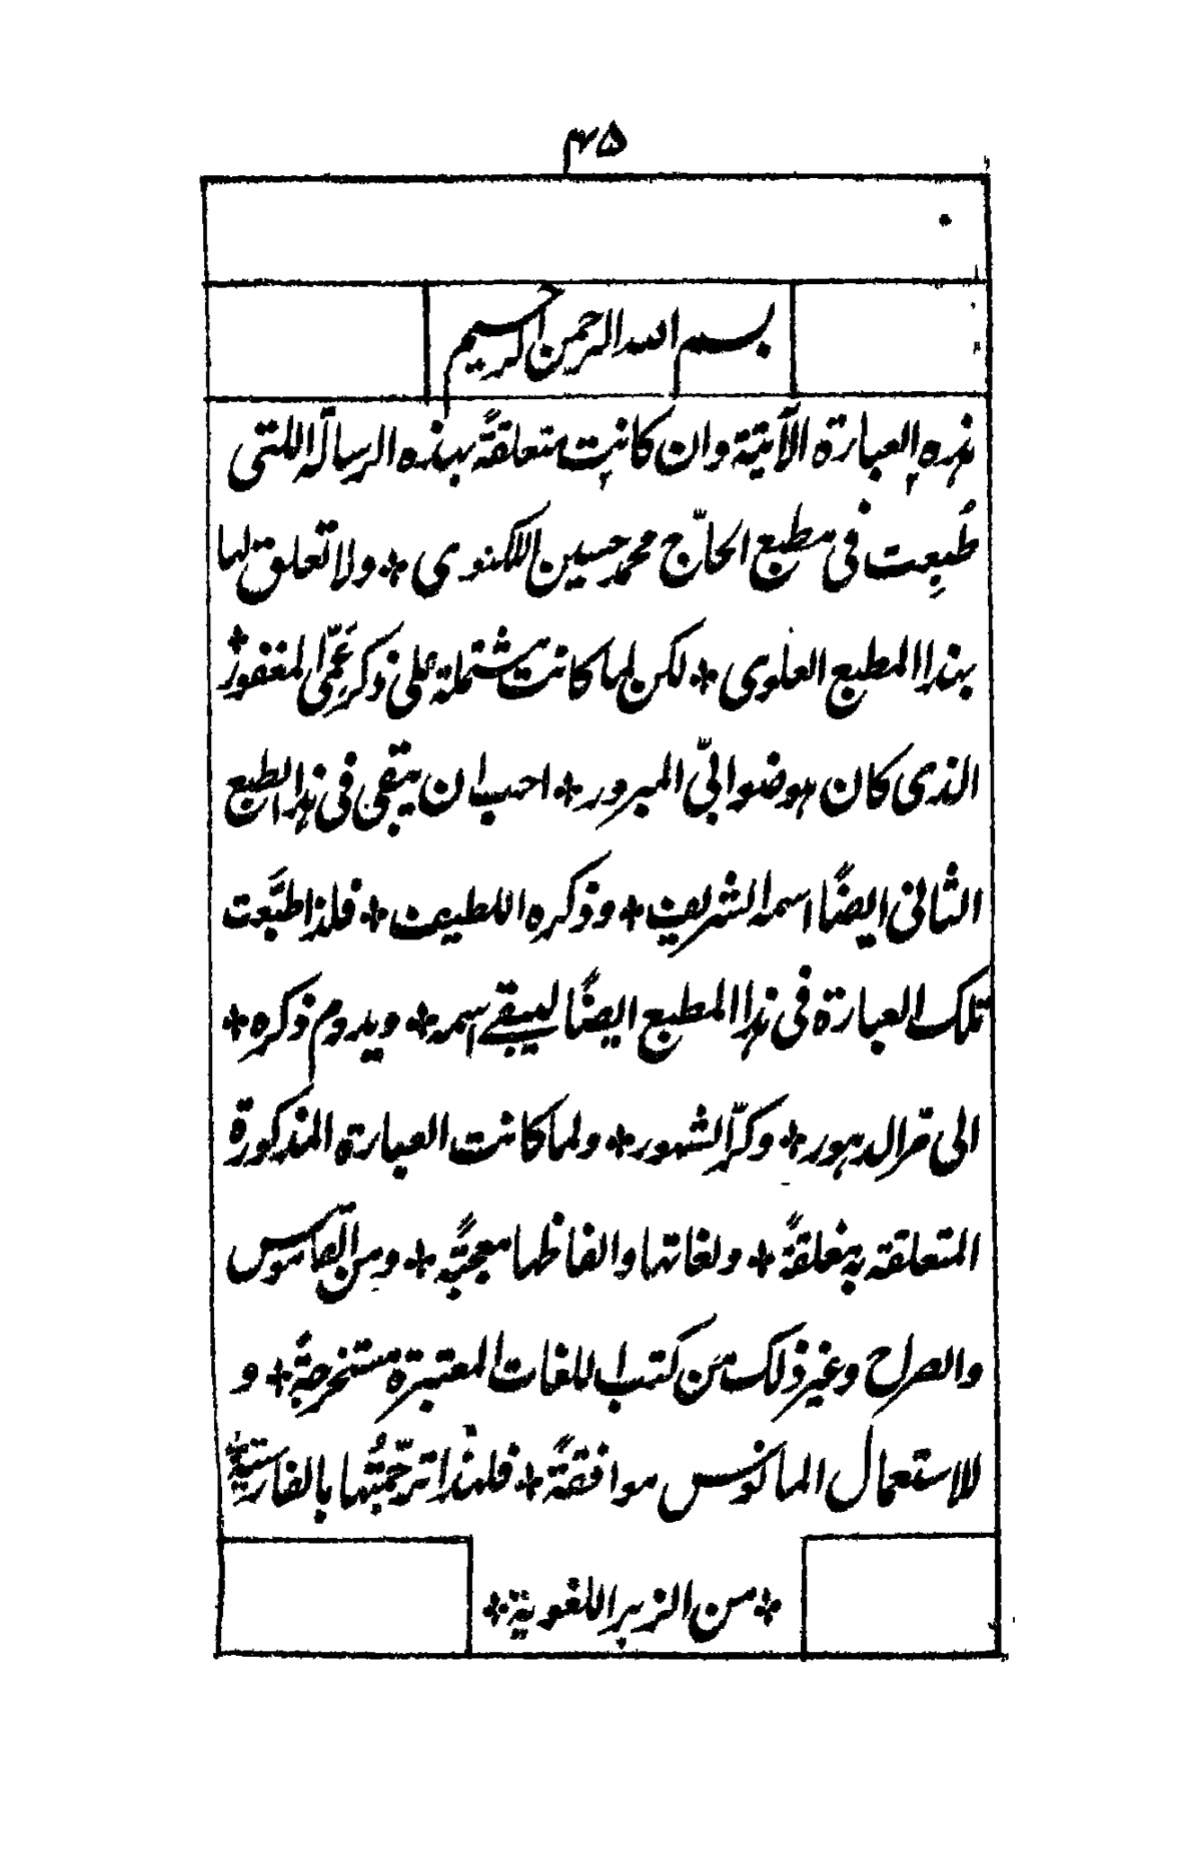 ۴۵
بسم الله الرحمن الرحيم
هذه العبارة الآتية وان كانت متعلقةً بهذه الرسالة اللتى
طُبِعت فى مطبع الحاجّ محمد حسين اللكنوى ❖ ولا تعلق لها
بهذا المطبع العلوى ❖ لكن لما كانت مشتملة على ذكر عَمّى المغفور ❖
الذى كان هو ضوا بىّ المبرور ❖ احب ان يبقى فى هذا الطبع
الثانى ايضًا اسمه الشريف ❖ وذكره اللطيف ❖ فلذا طبَّعت
تلك العبارة فى هذا المطبع ايضًا ليبقے اسمه ❖ ويدوم ذكره ❖
الى مرّ الدهور ❖ وكرّ الشهور ❖ ولما كانت العبارة المذكورة
المتعلقه به مغلقةً ❖ ولغاتها والفاظها معجبةً ❖ ومن القاموس
والصراح وغير ذلك من كتب اللغات المعتبرة مستخرجةً ❖ و
للاستعمال المانوس موافقةً ❖ فلهذا ترجّمتُها بالفارسيّة
❖ من الزبر اللغوية ❖